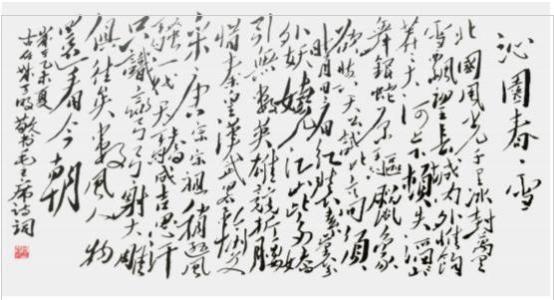 沁園春·雪
北國風光千里冰封萬里
雪飄望長城内外惟餘
莽莽大河上下頓失滔滔山
舞銀蛇原驅蠟象
欲與天公試比高須
晴日看紅裝素裹分
外妖嬈江山如此多嬌
引無數英雄競折腰
惜秦皇漢武略輸文
采唐宗宋祖稍遜風
騷一代天驕成吉思汗
只識彎弓射大雕
俱往矣數風流人物
還看今朝
歲乙未夏
敬书毛主席詩詞